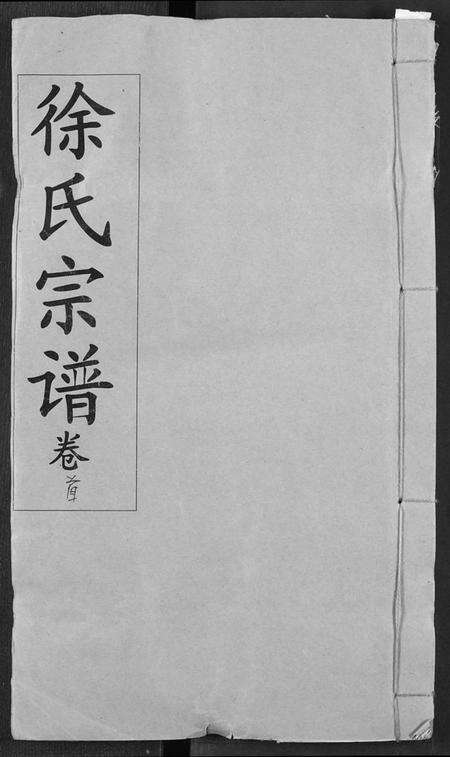 徐氏宗谱卷首